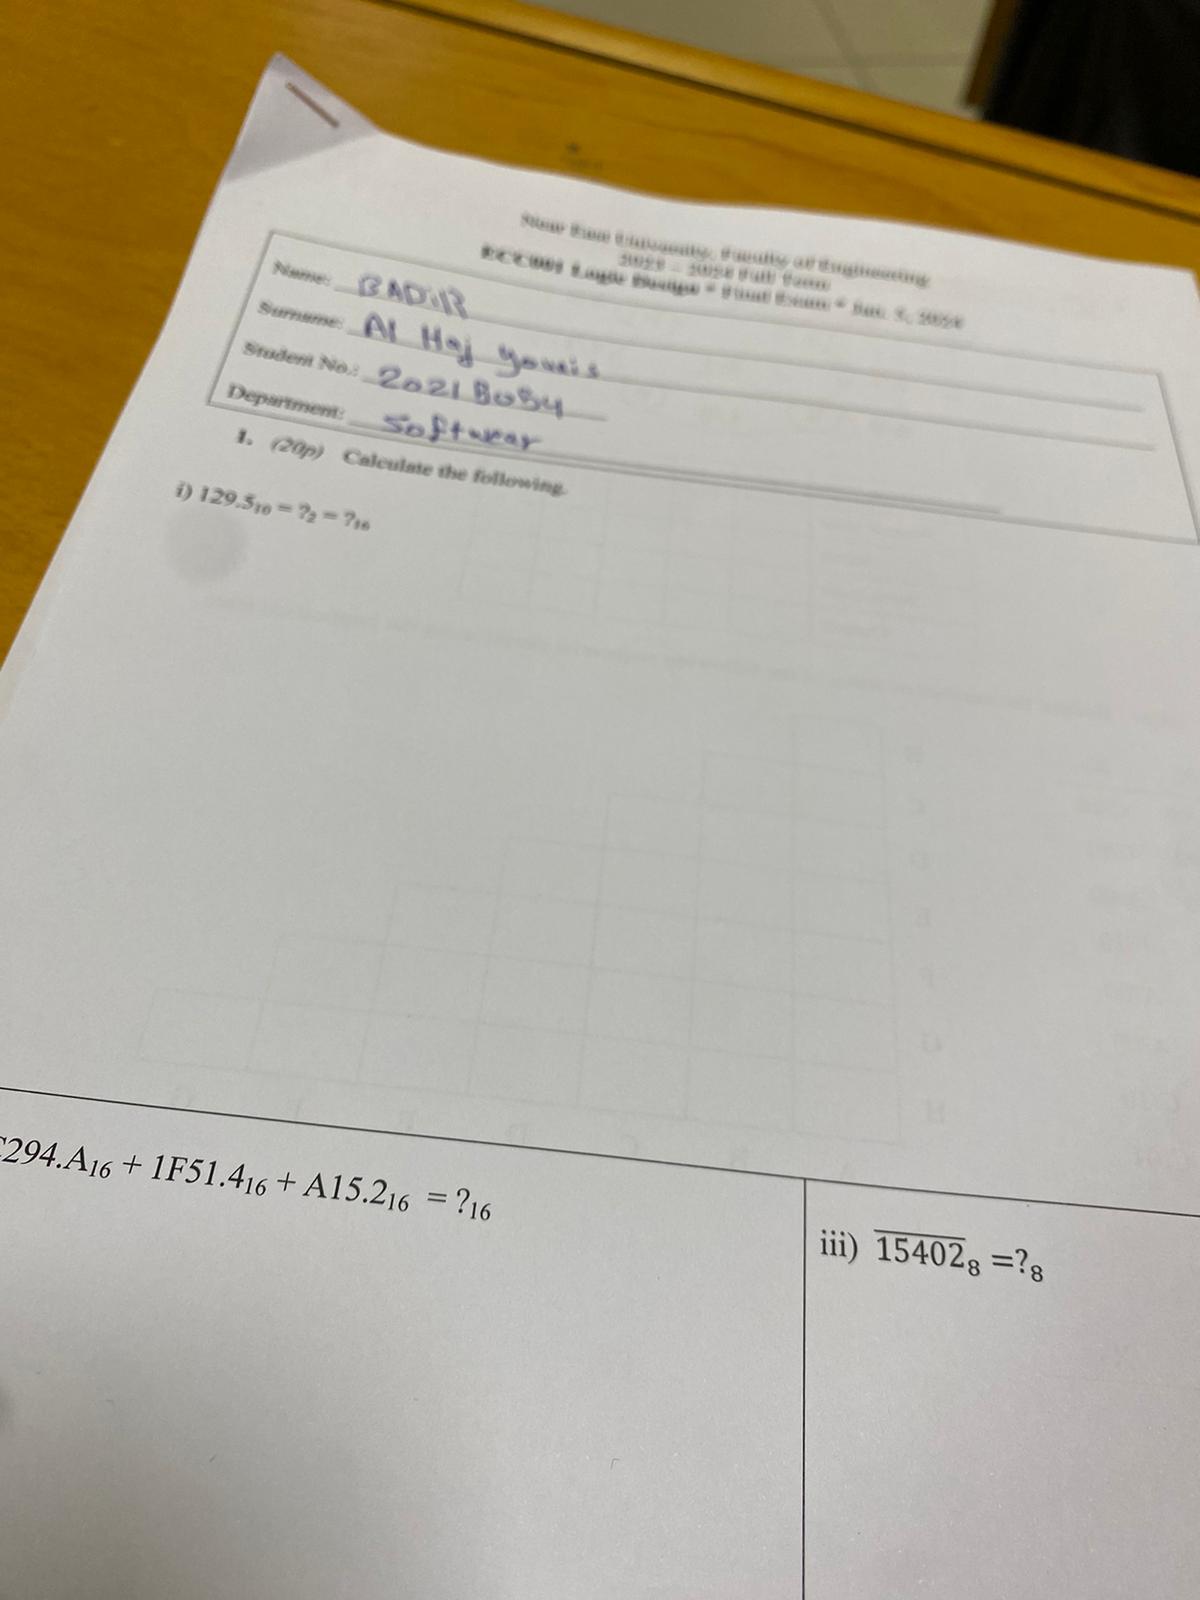 Near East University, Faculty of Engineering
2023 – 2024 Fall Term
Logic Design - Final Exam - Jan. 5, 2024
Name: BADIR
Surname: Al Haj
Student No.:
Department: Softwear
1. (20p) Calculate the following.
i) 129.5₁₀ = ?₂ = ?₁₆
C294.A₁₆ + 1F51.4₁₆ + A15.2₁₆ = ?₁₆
iii) 15402₈ =?₈